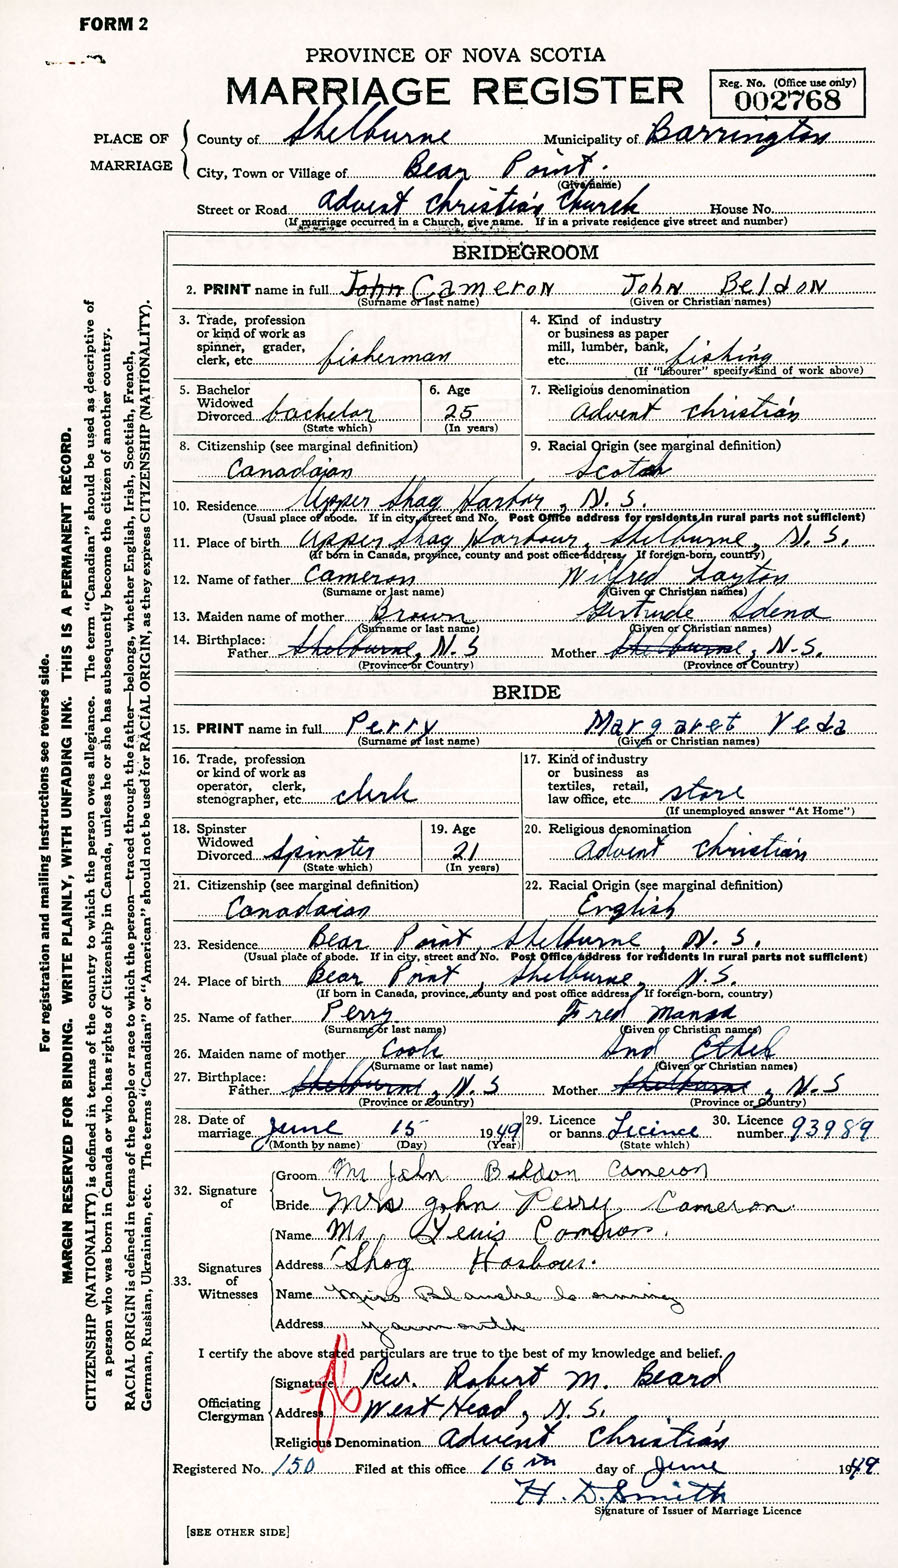 FORM 2
PROVINCE OF NOVA SCOTIA
MARRIAGE REGISTER
Reg. No. (Office use only)
002768
PLACE OF MARRIAGE
County of Shelburne Municipality of Barrington
City, Town or Village of Bear Point.
(Give name)
Street or Road Advent Christian Church House No.
(If marriage occurred in a Church, give name. If in a private residence give street and number)
BRIDEGROOM
2. PRINT name in full John Cameron John Beldon
(Surname or last name) (Given or Christian names)
3. Trade, profession or kind of work as spinner, grader, clerk, etc. fisherman
4. Kind of industry or business as paper mill, lumber, bank, etc. fishing
(If "labourer" specify kind of work above)
5. Bachelor Widowed Divorced bachelor
(State which)
6. Age 25
(In years)
7. Religious denomination
Advent Christian
8. Citizenship (see marginal definition)
Canadaian
9. Racial Origin (see marginal definition)
Scotch
10. Residence Upper Shag Harbor, N.S.
(Usual place of abode. If in city, street and No. Post Office address for residents in rural parts not sufficient)
11. Place of birth Upper Shag Harbour, Shelburne, N.S.
(If born in Canada, province, county and post office address. If foreign-born, country)
12. Name of father Cameron Wilfred Layton
(Surname or last name) (Given or Christian names)
13. Maiden name of mother Brown Gertrude Adena
(Surname or last name) (Given or Christian names)
14. Birthplace:
Father Shelburne, N.S Mother Shelburne, N.S.
(Province or Country) (Province or Country)
BRIDE
15. PRINT name in full Perry Margaret Veda
(Surname or last name) (Given or Christian names)
16. Trade, profession or kind of work as operator, clerk, stenographer, etc. clerk
17. Kind of industry or business as textiles, retail, law office, etc. store
(If unemployed answer "At Home")
18. Spinster Widowed Divorced Spinster
(State which)
19. Age 21
(In years)
20. Religious denomination
Advent Christian
21. Citizenship (see marginal definition)
Canadaian
22. Racial Origin (see marginal definition)
English
23. Residence Bear Point, Shelburne, N.S.
(Usual place of abode. If in city, street and No. Post Office address for residents in rural parts not sufficient)
24. Place of birth Bear Point, Shelburne, N.S.
(If born in Canada, province, county and post office address. If foreign-born, country)
25. Name of father Perry Fred
(Surname or last name) (Given or Christian names)
26. Maiden name of mother Cook Ethel
(Surname or last name) (Given or Christian names)
27. Birthplace:
Father Shelburne, N.S Mother Shelburne, N.S
(Province or Country) (Province or Country)
28. Date of marriage June 15 1949
(Month by name) (Day) (Year)
29. Licence or banns Licince
(State which)
30. Licence number 93989
32. Signature of
Groom Mr John Beldon Cameron
Bride Mrs John Perry Cameron.
33. Signatures of Witnesses
Name Cameron.
Address Shag Harbour.
Name Miss Blanche
Address Yarmouth
I certify the above stated particulars are true to the best of my knowledge and belief.
Officiating Clergyman
Signature Rev. Robert M. Beard
Address West Head, N.S.
Religious Denomination Advent Christian
Registered No. 150 Filed at this office 16 day of June 1949
H. D. Smith
Signature of Issuer of Marriage Licence
[SEE OTHER SIDE]
For registration and mailing instructions see reverse side.
MARGIN RESERVED FOR BINDING. WRITE PLAINLY, WITH UNFADING INK. THIS IS A PERMANENT RECORD.
CITIZENSHIP (NATIONALITY) is defined in terms of the country to which the person owes allegiance. The term "Canadian" should be used as descriptive of
a person who was born in Canada or who has rights of Citizenship in Canada, unless he or she has subsequently become the citizen of another country.
RACIAL ORIGIN is defined in terms of the people or race to which the person—traced through the father—belongs, whether English, Irish, Scottish, French,
German, Russian, Ukrainian, etc. The terms "Canadian" or "American" should not be used for RACIAL ORIGIN, as they express CITIZENSHIP (NATIONALITY).